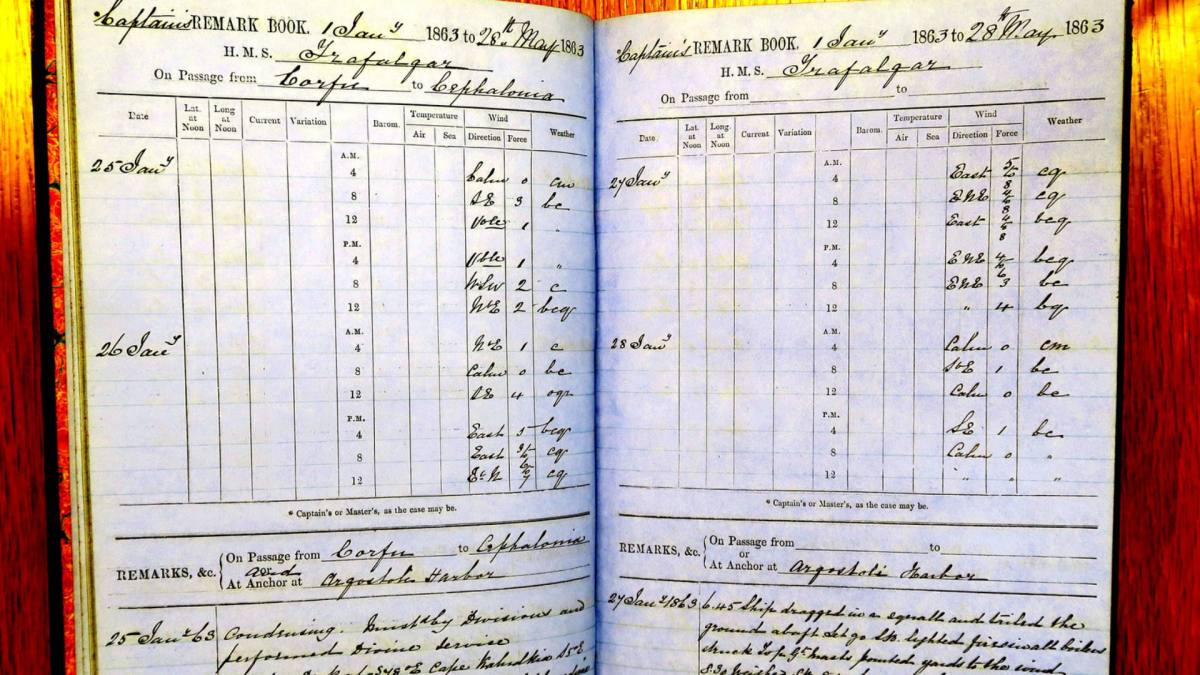 Captain's REMARK BOOK. 1 Jany 1863 to 28th May 1863
H. M. S. Trafalgar
On Passage from Corfu to Cephalonia
Date Lat. at Noon Long at Noon Current Variation Barom. Temperature Air Sea Wind Direction Force Weather
25 Jany
A.M.
4 Calm 0 cm
8 SE 3 bc
12 Vble 1 "
P.M.
4 Vble 1 "
8 WSW 2 c
12 NE 2 bcq
26 Jany
A.M.
4 NE 1 c
8 Calm 0 bc
12 SE 4
P.M.
4 East 5 bcq
8 East cq
12 EbN cq
* Captain's or Master's, as the case may be.
REMARKS, &c. On Passage from Corfu to Cephalonia
and
At Anchor at Argostoli Harbor
25 Jany 63 Condensing. Must'd by Divisions and
performed Divine Service
Cape
Captain's REMARK BOOK. 1 Jany 1863 to 28th May 1863
H. M. S. Trafalgar
On Passage from to
Date. Lat. at Noon Long. at Noon Current Variation Barom. Temperature Air Sea Wind Direction Force Weather
27 Jany
A.M.
4 East cq
8 ENE cq
12 East bcq
P.M.
4 ENE bcq
8 ENE 3 bc
12 " 4 bq
28 Jany
A.M.
4 Calm 0 cm
8 SE 1 bc
12 Calm 0 bc
P.M.
4 SE 1 bc
8 Calm 0 "
12 " " "
* Captain's or Master's, as the case may be.
REMARKS, &c. On Passage from to
or
At Anchor at Argostoli Harbor
27 Jany 1863 6.45 Ship dragged in a squall and tailed the
ground abaft let go lighted fires in all boilers
struck Top Gt Masts pointed yards to the wind
8.30 Weighed